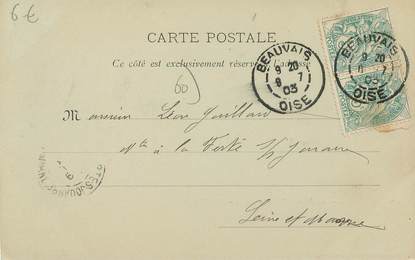 6€
CARTE POSTALE
Ce côté est exclusivement réservé à l'adresse
BEAUVAIS
9 20
8 7
03
OISE
BEAUVAIS
9 20
8 7
03
OISE
Monsieur Léon Guillard
à la Ferté s/s Jouarre
Seine et Marne